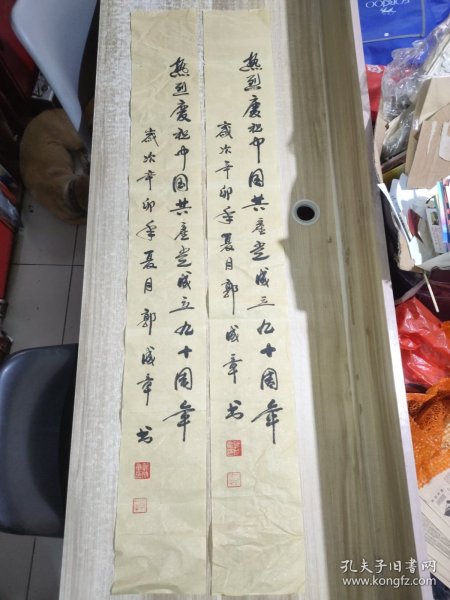 热烈庆祝中国共产党成立九十周年
岁次辛卯年夏月郭成章书
热烈庆祝中国共产党成立九十周年
岁次辛卯年夏月郭成章书
孔夫子旧书网
www.kongfz.com